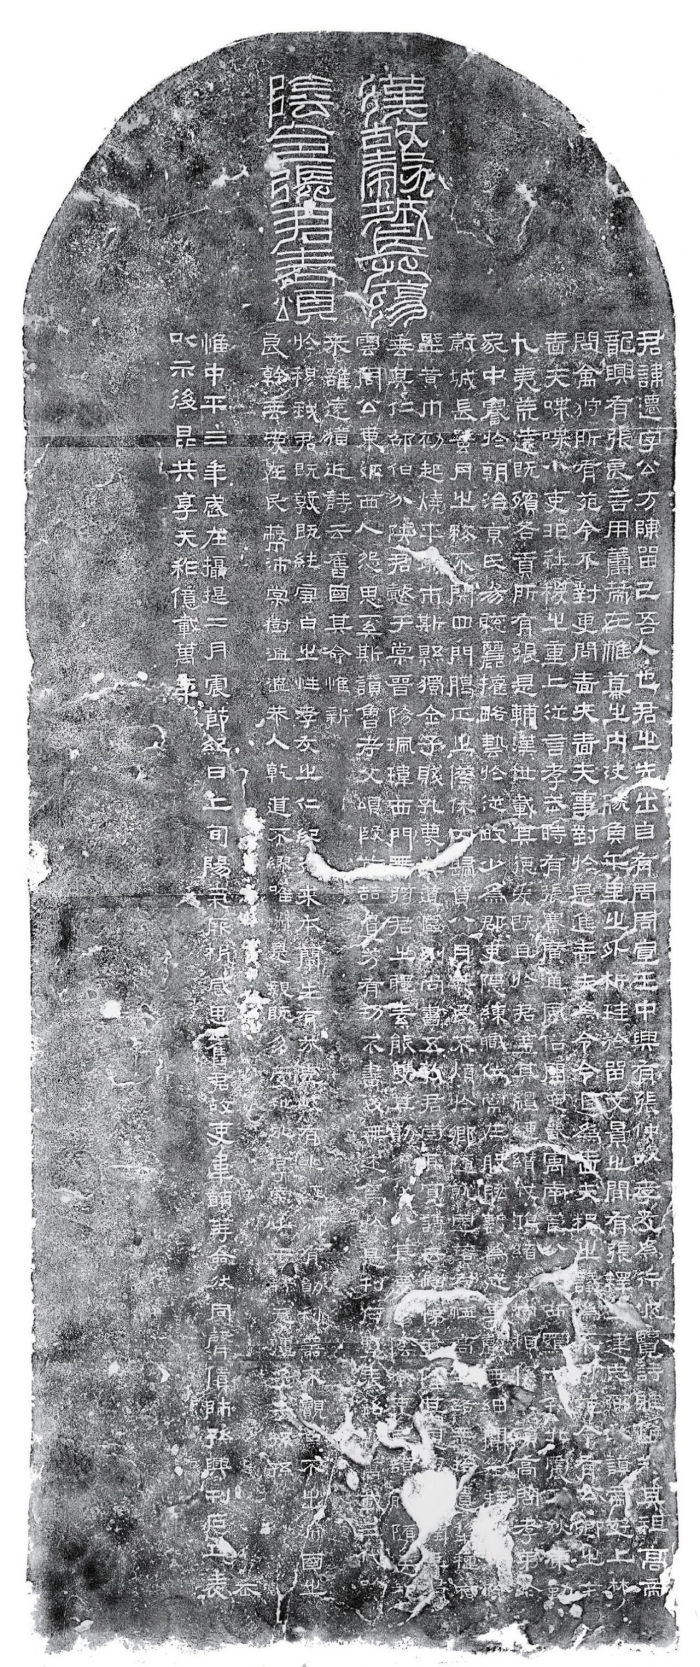 漢故穀城長蕩
陰令張君表頌
君諱遷字公方陳留己吾人也君之先出自有周周宣王中興有張仲以孝友為行披覽詩雅煥知其祖高帝
龍興有張良善用籌策在帷幕之內決勝負千里之外析珪於留文景之間有張釋之建忠弼之謨帝遊上林
問禽狩所有苑令不對更問嗇夫嗇夫事對於是進嗇夫為令令退為嗇夫釋之議為不可苑令有公卿之才
嗇夫喋喋小吏非社稷之重上從言孝武時有張騫廣通風俗開定畿寓南苞八蠻西羈六戎北震五狄東勤
九夷荒遠既殯各貢所有張是輔漢世載其德爰既且於君蓋其繵縺纘戎鴻緒牧守相係不殞高問孝弟於
家中謇於朝治京氏易聰麗權略藝於從畋少為郡吏隱練職位常在股肱數為從事聲無細聞徵拜郎中除
穀城長蠶月之務不閉四門臘正之傺休囚歸賀八月民不煩於鄉隨就虛落存恤高年路無拾遺犁種宿
野黃巾初起燒平城市斯縣獨全子賤孔蔑其道區別尚書五教君崇其寬詩云愷悌君隆其恩東里潤色君
垂其仁邵伯分陝君懿于棠晉陽珮瑋西門帶弦君之體素能雙其勛流化八基遷蕩陰令吏民頡頏隨送如
雲周公東征西人怨思奚斯讚魯考父頌殷前喆遺芳有功不書後無述焉於是刊石豎表銘勒萬載三代以
來雖遠猶近詩云舊國其命惟新
於穆我君既敦既純雪白之性孝友之仁紀行來本蘭生有芬克岐有兆綏御有勛利器不覿魚不出淵國之
良幹垂愛在民蔽沛棠樹溫溫恭人乾道不繆唯淑是親既多受祉永享南山干祿無疆子子孫孫
惟中平三年歲在攝提二月震節紀日上旬陽氣厥析感思舊君故吏韋萌等僉然同聲賃師孫興刊石立表
以示後昆共享天祚億載萬年